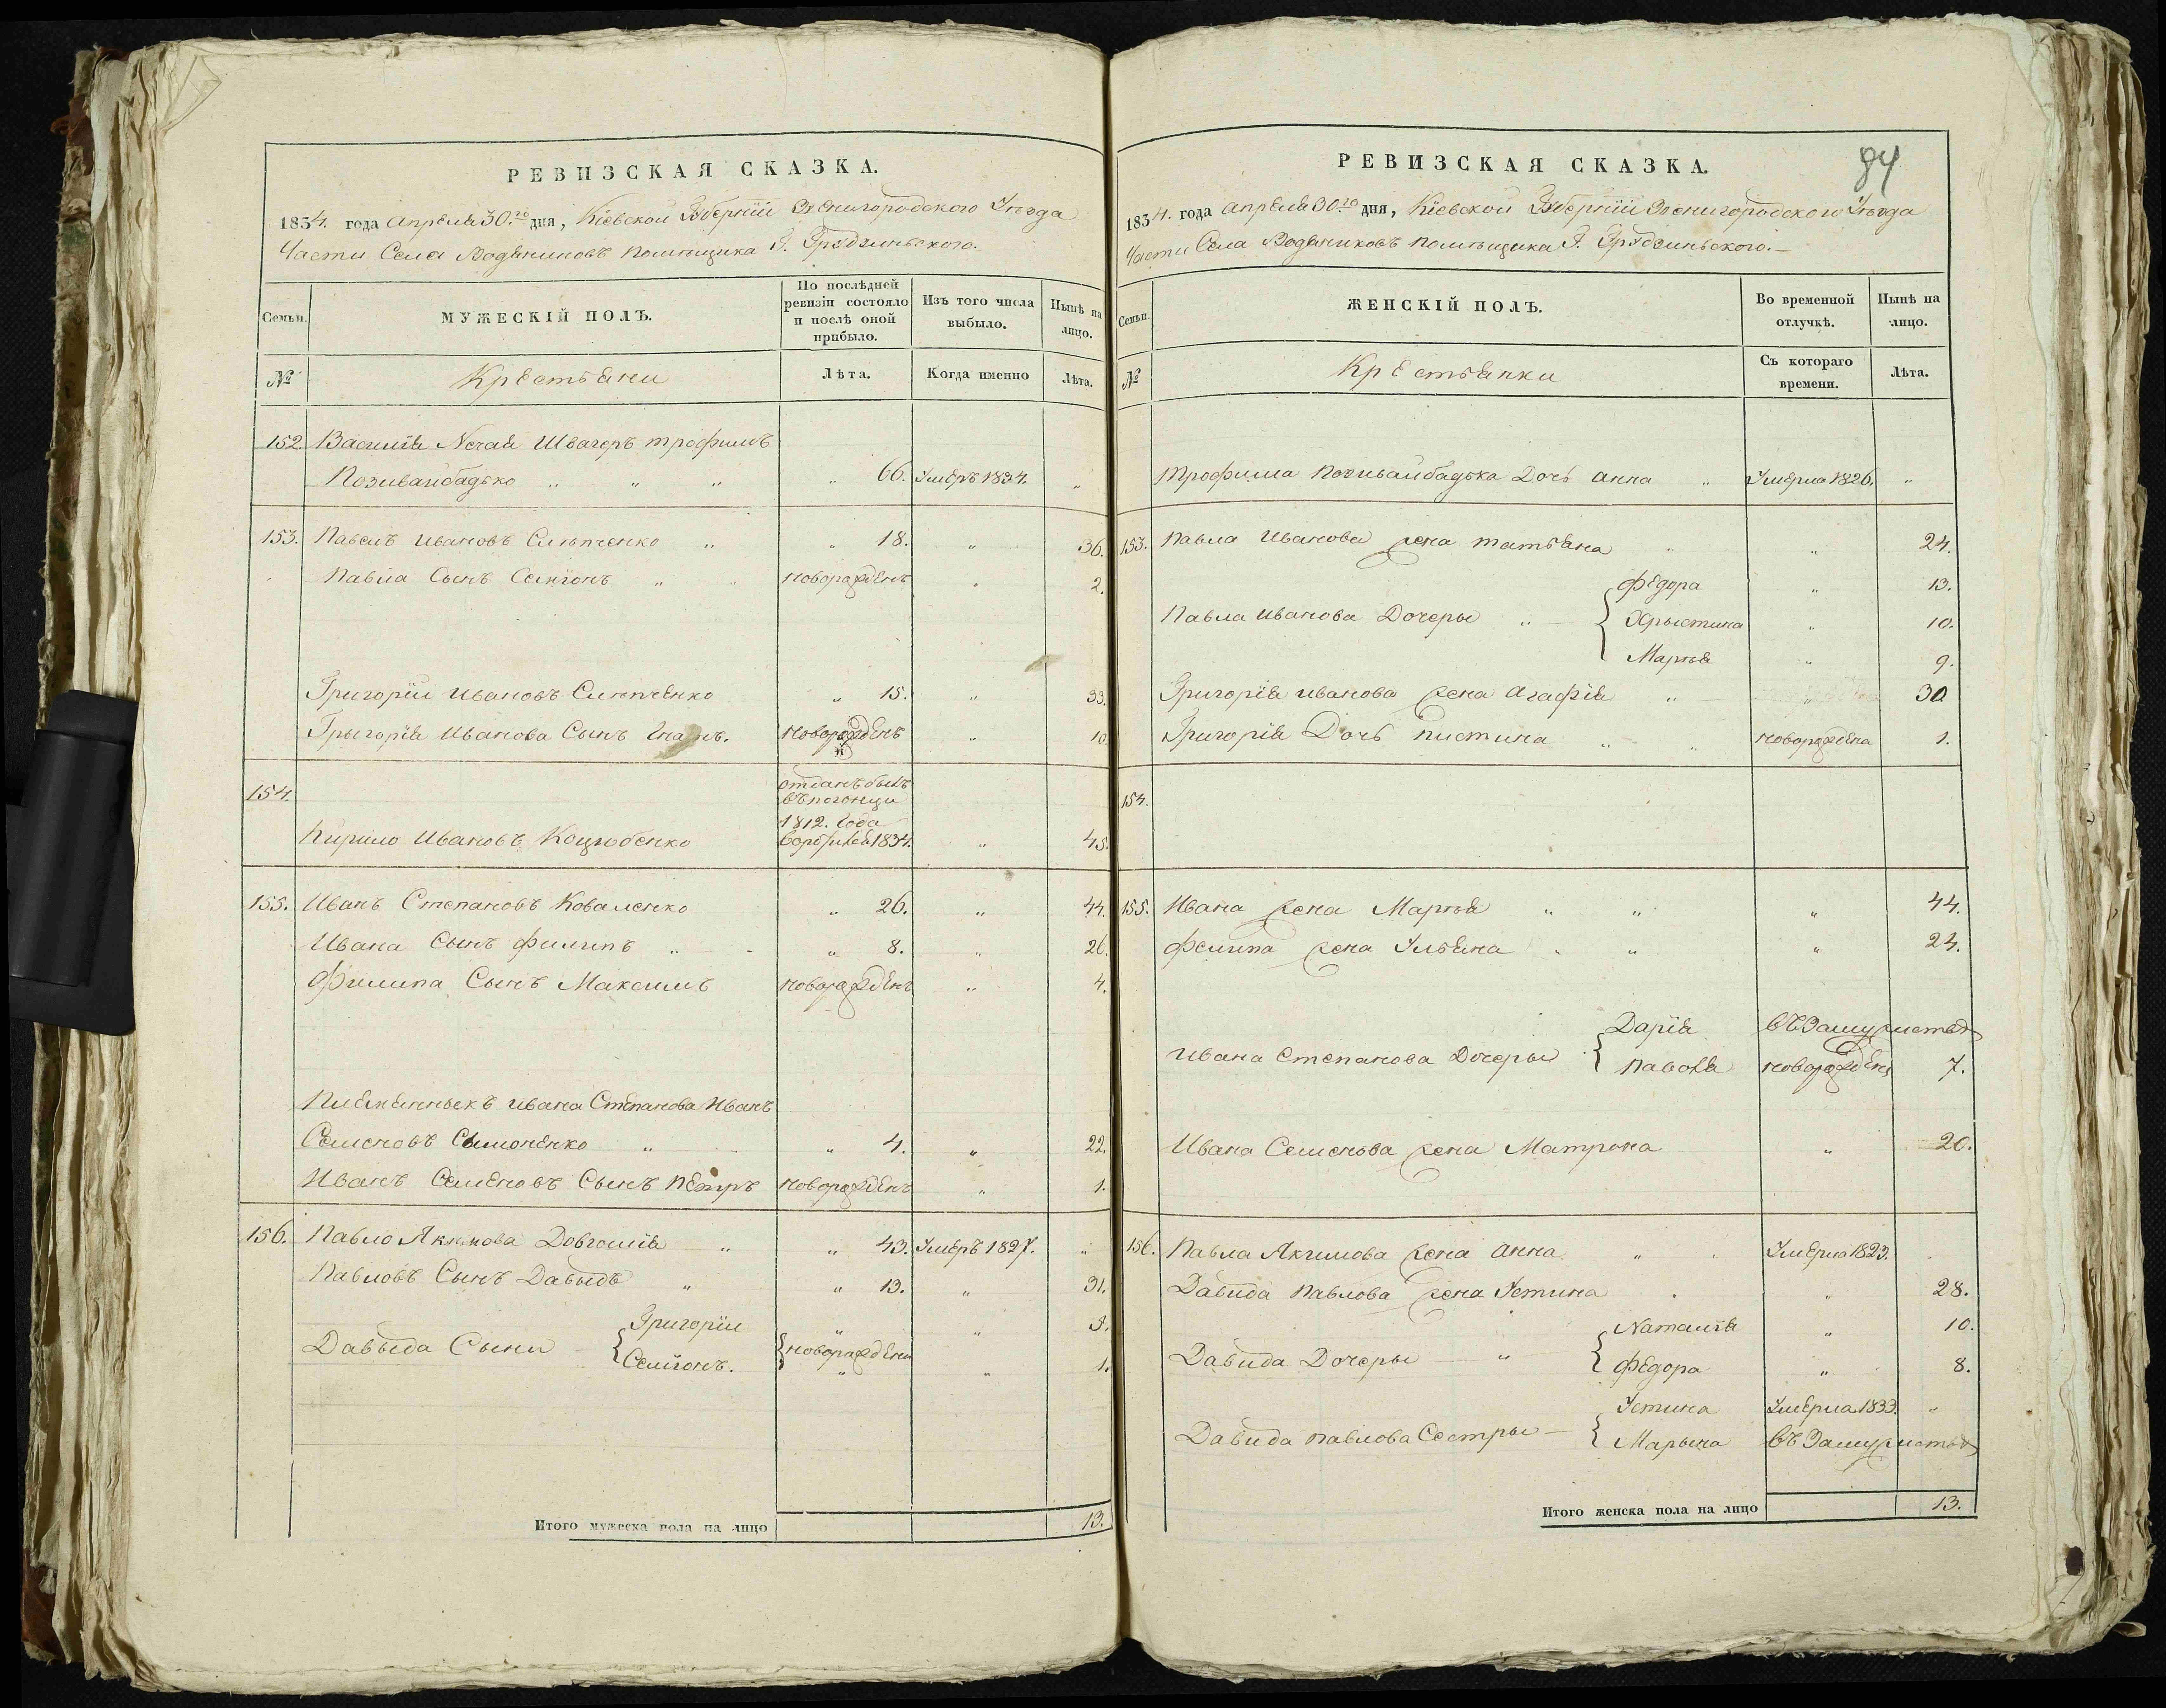 РЕВИЗСКАЯ СКАЗКА.
1834. года Апреля 30.го дня, Кіевской Губерніи Звенигородского Уезда
Части Села Водяниковъ помѣщика Г. Грудзиньского.
Семьи.
МУЖЕСКІЙ ПОЛЪ.
По послѣдней ревизіи состояло и послѣ оной прибыло.
Изъ того числа выбыло.
Нынѣ на лицо.
№
Крестьяни
Лѣта.
Когда именно
Лѣта.
152. Василія Нечая Швагеръ трофимъ
Позивайбадько „ „ „ „ 66. Умеръ 1834. „
153. Павелъ Ивановъ Слѣпченко „ „ 18. „ 36.
Павла Сынъ Семіонъ „ „ новорожденъ „ 2.
Григорій Ивановъ Слѣпченко „ 15. „ 33.
Григорія Иванова Сынъ новорожденъ „ 10.
154. отданъ былъ
въ погонци
1812. Года
Кирило Ивановъ Коцюбенко 1834. „ 45.
155. Иванъ Степановъ Коваленко „ 26. „ 44.
Ивана Сынъ Филипъ „ „ 8. „ 26.
Филипа Сынъ Максимъ новорожденъ „ 4.
Племѣнныкъ Ивана Степанова Иванъ
Семеновъ Сымоненко „ „ 4. „ 22.
Иванъ Семеновъ Сынъ Петръ новорожденъ „ 1.
156. Павло Акимова Довгошія „ „ 43. Умеръ 1827. „
Павловъ Сынъ Давыдъ „ „ 13. „ 31.
Давыда Сыни { Григорій „ „ 3.
Семіонъ. } новорождени „ 1.
Итого мужеска пола на лицо 13.
84
РЕВИЗСКАЯ СКАЗКА.
1834. года Апреля 30.го дня, Кіевской Губерніи Звенигородского Уезда
Части Села Водяниковъ помѣщика Г. Грудзиньского.—
Семьи.
ЖЕНСКІЙ ПОЛЪ.
Во временной отлучкѣ.
Нынѣ на лицо.
№
Крестьянки
Съ котораго времени.
Лѣта.
Трофима Позивайбадька Дочь Анна „ Умерла 1826. „
153. Павла Иванова жена Татьяна „ „ 24.
Федора „ 13.
Павла Иванова Дочеры „ — { Хрыстина „ 10.
Марья „ 9.
Григорія Иванова жена Агафія „ „ 30
Григорія Дочь Пистина „ „ новорождена 1.
154.
155. Ивана жена Марья „ „ „ 44.
Филипа жена Ульяна „ „ „ 24.
Дарія въ Замужствѣ
Ивана Степанова Дочеры { Паволя новорождена 7.
Ивана Семенова жена Матрона „ 20.
156. Павла Акимова жена Анна „ Умерла 1823.
Давида Павлова жена Устина „ 28.
Наталія „ 10.
Давида Дочеры — „ { Федора „ 8.
Устина Умерла 1833. „
Давида Павлова Сестры — { Марына въ Замужствѣ
Итого женска пола на лицо 13.